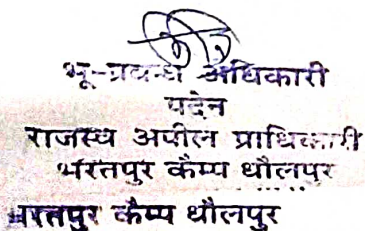 भू-प्रबन्ध अधिकारी
पदेन
राजस्व अपील प्राधिकारी
भरतपुर कैम्प धौलपुर
भरतपुर कैम्प धौलपुर